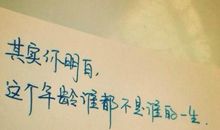 其实你明白，
这个年龄谁都不是谁的一生.